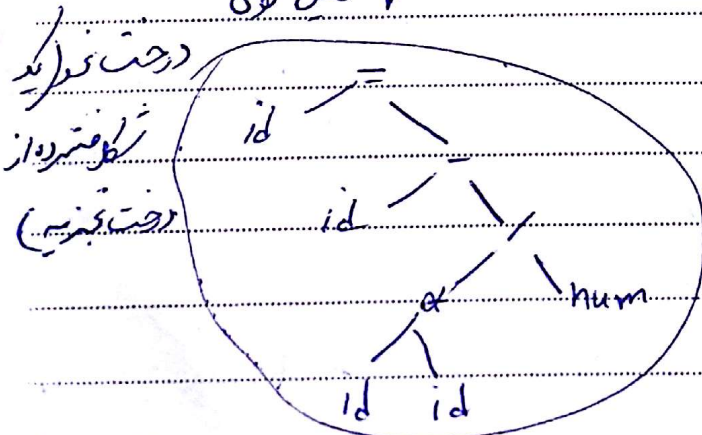 درخت نحو (یک
شکل فشرده از
درخت تجزیه)
=
id
-
id
/
* num
id id